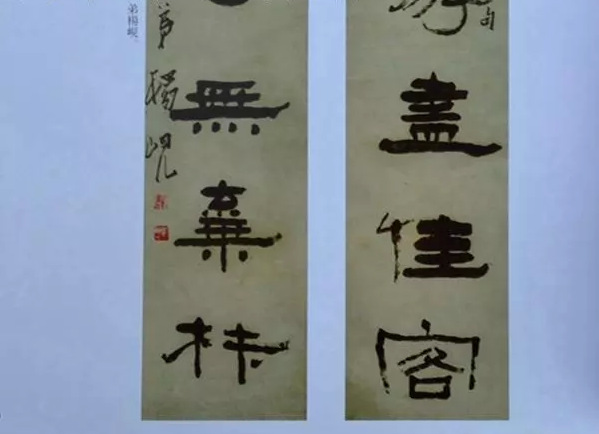 盡佳客
無棄材
弟楊峴
弟楊峴